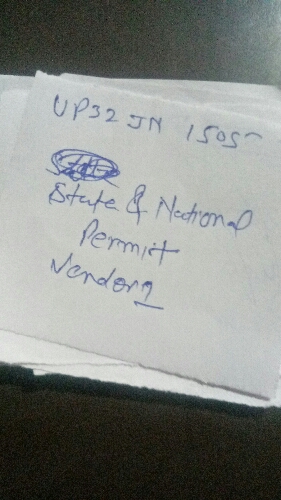 UP32 JN 1505
State & National
Permit
Vendor